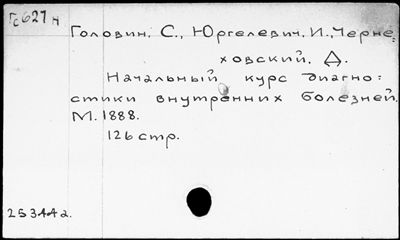 Гс627н
Головин. С., Юргелевич. И., Черне=
ховский. Д.
Начальный курс диагно=
стики внутренних болезней.
М. 1888.
126 стр.
25344а.